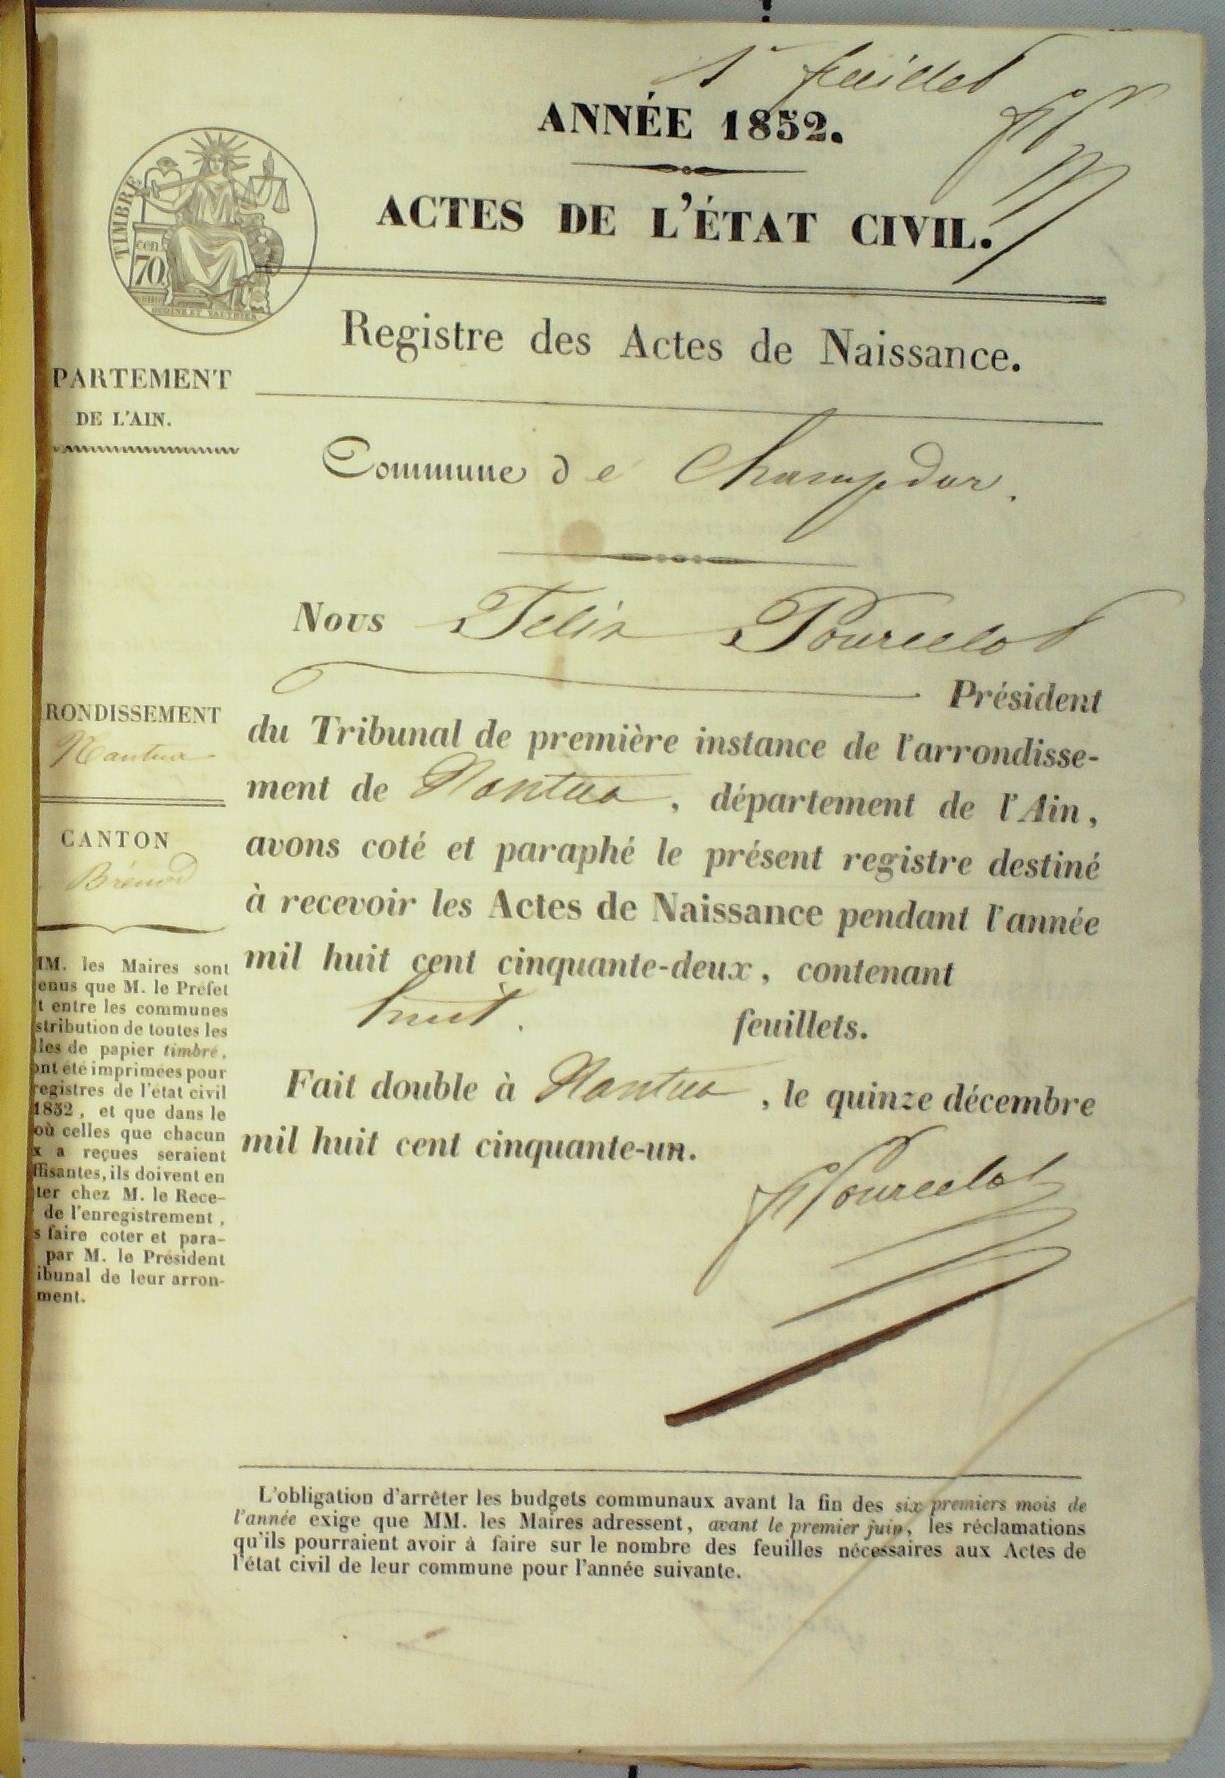 1r feuillet
ANNÉE 1852.
ACTES DE L'ÉTAT CIVIL.
TIMBRE
cen
70
Registre des Actes de Naissance.
PARTEMENT
DE L'AIN.
Commune de Champdor.
Nous Felix Pourcelot
Président
du Tribunal de première instance de l'arrondisse-
ment de Nantua, département de l'Ain,
avons coté et paraphé le présent registre destiné
à recevoir les Actes de Naissance pendant l'année
mil huit cent cinquante-deux, contenant
huit. feuillets.
Fait double à Nantua, le quinze décembre
mil huit cent cinquante-un.
F Pourcelot
RONDISSEMENT
Nantua
CANTON
Brénod
MM. les Maires sont
enus que M. le Préfet
t entre les communes
stribution de toutes les
lles de papier timbré,
ont été imprimées pour
registres de l'état civil
1852, et que dans le
où celles que chacun
x a reçues seraient
ffisantes, ils doivent en
ter chez M. le Rece-
de l'enregistrement,
s faire coter et para-
par M. le Président
ibunal de leur arron-
ment.
L'obligation d'arrêter les budgets communaux avant la fin des six premiers mois de
l'année exige que MM. les Maires adressent, avant le premier juin, les réclamations
qu'ils pourraient avoir à faire sur le nombre des feuilles nécessaires aux Actes de
l'état civil de leur commune pour l'année suivante.